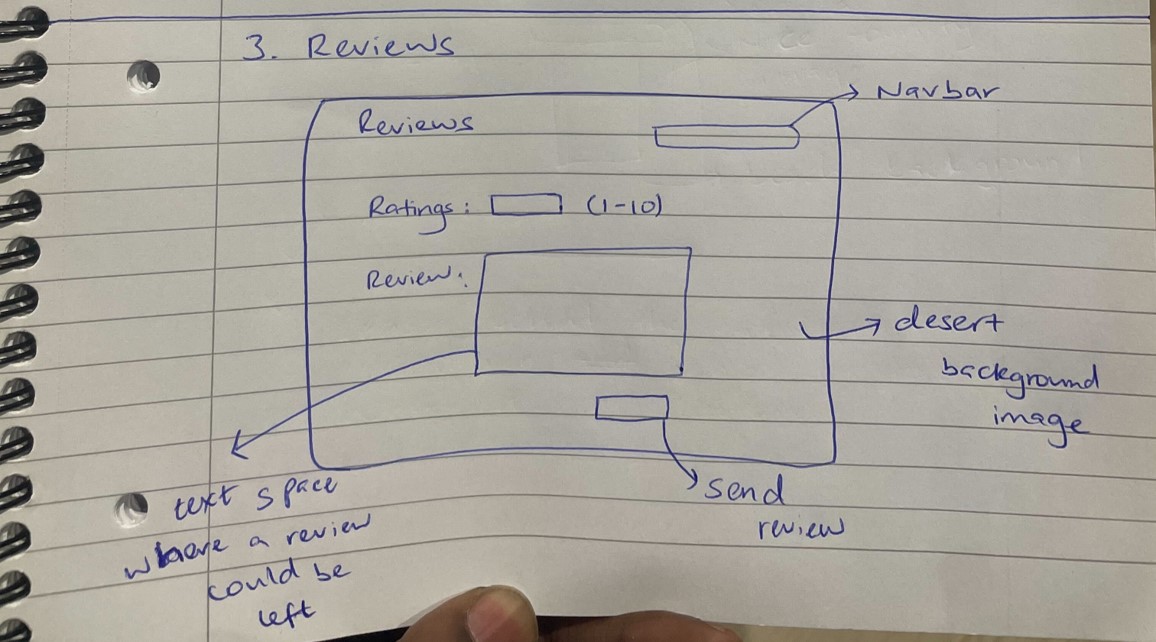 3. Reviews
Navbar
Reviews
Ratings: (1-10)
Review:
desert
background
image
send
review
text space
where a review
could be
left